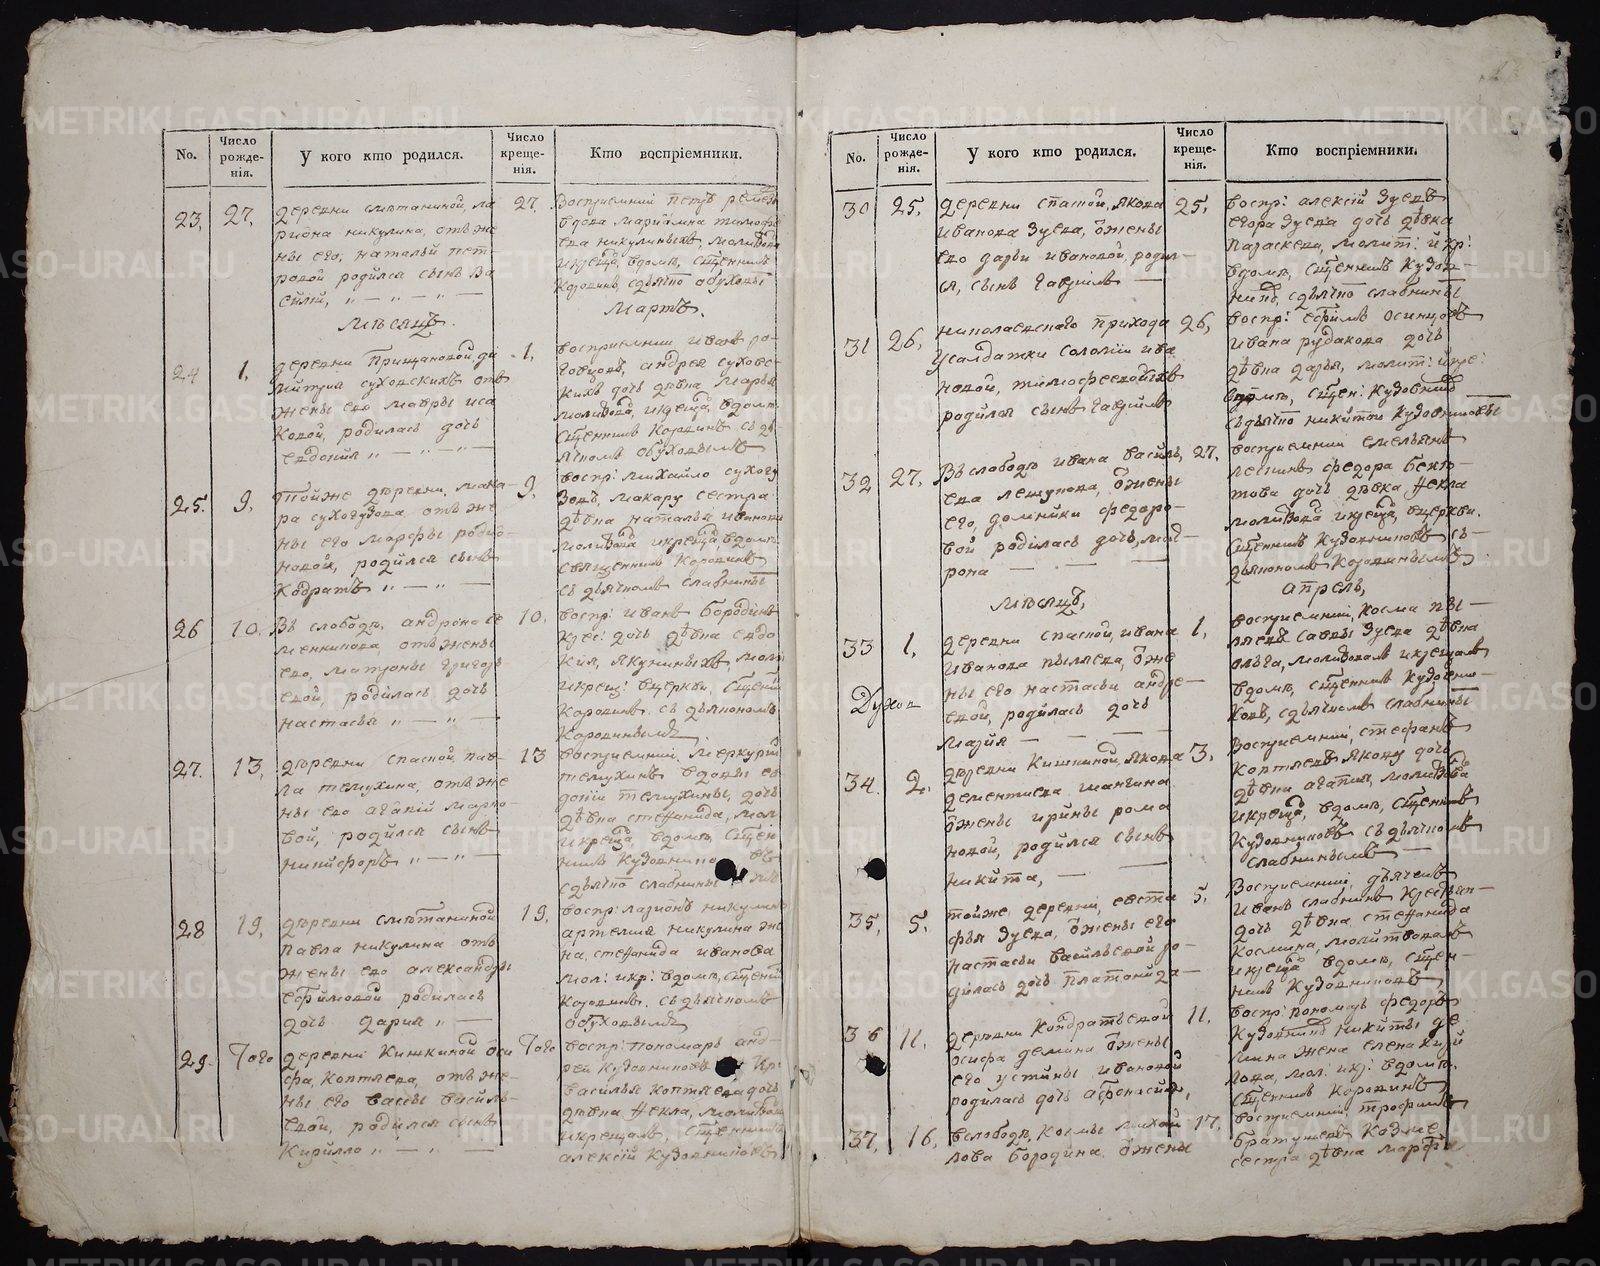 No.
Число рожде-нія.
У кого кто родился.
Число креще-нія.
Кто воспріемники.
23, 27,
деревни сметаниной, ла
риона никулина, отъ же
ны его, натальи пет
ровой родился сынъ ва
силій, „ — „ — „ —
27.
Воспріемники петръ
вдова
никулиныхъ, молитвова
и крещ: вдомѣ, сщенникъ
Коровинъ, сдьячко обуховы
Мѣсяцъ. Мартъ.
24 1,
деревни Прищановой, ди
митрія суховскихъ отъ
жены ево мавры иса
ковой, родилась дочь
евдокия „ — „ — „ —
1,
воспріемники иванъ
андрея суховс-
кихъ дочь дѣвка Марья
молитвова, и креща, вдомѣ
Сщенникъ Коровинъ съ дь
ячкомъ обуховымъ
25. 9,
тойже деревни, мака-
ра сухогузова отъ же
ны его марфы родио-
новой, родился сынъ
Кодратъ „ — „ —
9,
воспр: михайло сухогу
зовъ, макару сестра
дѣвка наталья иванова
молитвова и крещ: вдомѣ
священникъ Коровинъ
съ дьячкомъ слабнины
26 10.
Въ слободѣ, андрона се
менникова, отъ жены
ево, матроны григорь
евой, родилась дочь
настасья „ — „ —
10,
воспр: иванъ бородинъ
крес: дочь дѣвка евдо
кия, якуниныхъ, моли
и крещ: вцеркви, Сщенни
Коровинъ. съ дьякономъ
Коровинымъ.
27. 13,
деревни спасой, пав-
ла темухина, отъ же
ны ево агапіи марко-
вой, родился сынъ
никифоръ „ — „ —
13
воспріемники Меркурій
темухинъ вдовы ев
докіи темухины, дочь
дѣвка стефанида, мол
и креща, вдомѣ, сщен
никъ Кузовнико въ
сдьячко слабнины
28 19,
деревни сметаниной
Павла никулина отъ
жены ево александры
ефимовой родилась
дочь дария „ —
19,
воспр: ларионъ никулинъ
артемия никулина же
на, стефанида иванова
мол: и кр: вдомѣ, сщенни
Коровинъ. съ дьячкомъ
обуховымъ
29. Того
деревни Кишкиной оси
фа, Коптяева, отъ же-
ны его вассы василь-
евой, родился сынъ
Кирилло „ — „ —
Того
воспр: пономарь анд-
рей Кузовниковъ и кр:
василья Коптяева дочь
дѣвка Фекла, молитвова
и крещалъ, Сщенникъ
алексій Кузовниковъ
No.
Число рожде-нія.
У кого кто родился.
Число креще-нія.
Кто воспріемники.
30 25,
деревни спасой, якова
иванова Зуева, ѿ жены
ево дарьи ивановой, родил-
ся, сынъ Гавріилъ —
25,
воспр: алексій Зуевъ
егора Зуева дочь дѣвка
Параскева, молит: и кр:
вдомѣ, Сщенникъ Кузов-
ник, сдьячко слабнины
31 26,
николаевскаго прихода
усалдатки соломіи ива
новой, тимофеевскихъ
родился сынъ Гавріилъ
26,
воспр: ефимъ осинцовъ
ивана рудакова дочь
дѣвка дарья, молит: и кре:
вдомѣ, сщен: Кузовник
съдьячко никитою Кузовниковы
32 27,
Въ слободѣ ивана василь,
ева лешукова, ѿ жены
его, домники федоро-
вой родилась дочь, мат-
рона — — —
27,
воспріемники емельянъ
федора бекто-
това дочь дѣвка Фекла
молитвова и креща, вцеркви.
Сщенникъ Кузовниковъ съ-
дьякономъ Коровинымъ
мѣсяцъ, апрель,
33 1,
деревни спасой, ивана
иванова пыляева, ѿ же
ны его настасьи андре-
евой, родилась дочь
Марія — — —
Духов
1,
воспріемники, косма пы-
ляевъ саввы Зуева дѣвка
ольга, молитвовалъ и крещалъ
вдомѣ, сщенникъ Кузовни-
ковъ, сдьячкомъ слабнины
34. 2.
деревни Кишкиной, якова
дементиева шангина
ѿ жены ирины рома
новой, родился сынъ
Никита, — —
3,
Воспріемники, стефанъ
Коптяевъ якову дочь
дѣвка агапия, молитвова
и креща, вдомѣ, сщенникъ
Кузовниковъ съ дьячкомъ
слабнинымъ —
35, 5,
тойже деревни, евста
фья Зуева, ѿ жены его
настасьи васильевой ро-
дилась дочь платонида —
5,
Воспріемники, дьячекъ
иванъ слабнинъ крестьян-
дочь дѣвка стефанида
космина, молитвовалъ
и креща вдомѣ, сщен-
никъ Кузовниковъ
36 11,
деревни Кондратьевой
осифа демина ѿ жены
его устины ивановой
родилась дочь афанасия,
11,
воспр: пономарь федоръ
Кузовник никиты де
мина жена елена кири
лова, мол: и кр: вдомѣ,
сщенникъ Коровинъ
37, 16,
вслободѣ, космы михай
лова бородина ѿ жены
17,
воспріемники, трофимъ
братушевъ Козме
сестра дѣвка марфы